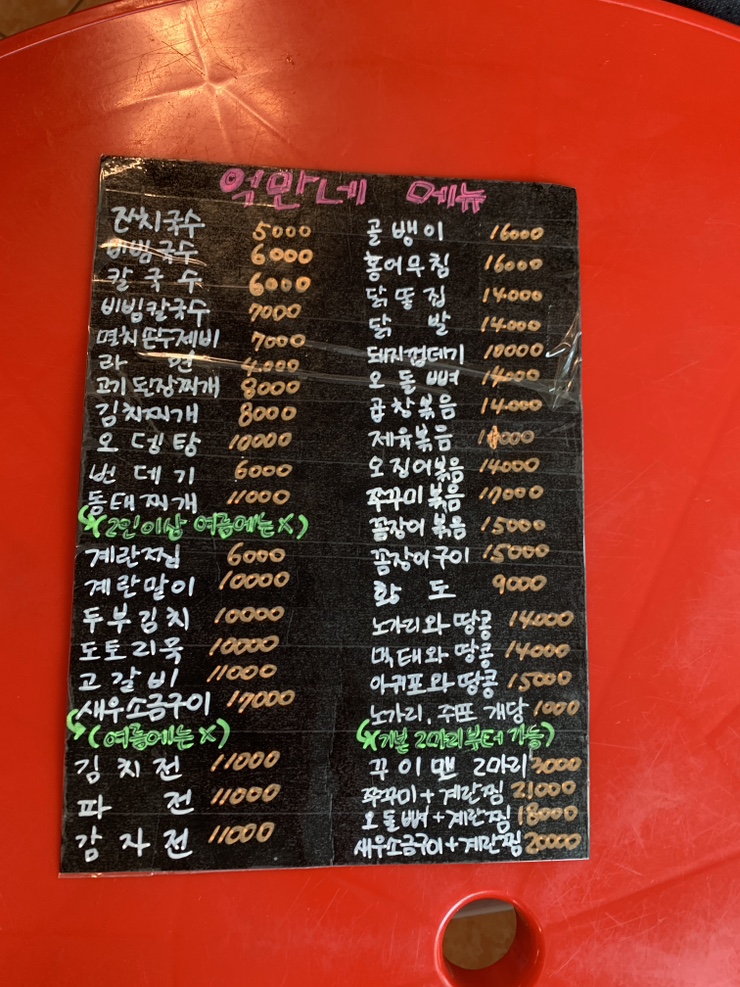 억만네 메뉴
잔치국수 5000
비빔국수 6000
칼국수 6000
비빔칼국수 7000
멸치손수제비 7000
라면 4.000
고기된장찌개 8000
김치찌개 8000
오뎅탕 10000
번데기 6000
동태찌개 11000
(2인이상 여름에는X)
계란찜 6000
계란말이 10000
두부김치 10000
도토리묵 10000
고갈비 11000
새우소금구이 17000
(여름에는X)
김치전 11000
파전 11000
감자전 11000
골뱅이 16000
홍어무침 16000
닭똥집 14000
닭발 14.000
돼지껍데기 10000
오돌뼈 14000
곱창볶음 14.000
제육볶음
오징어볶음 14000
쭈꾸미볶음 17000
꼼장어볶음 15000
꼼장어구이 15000
황도 9000
노가리와땅콩 14.000
먹태와땅콩 14000
아귀포와땅콩 15000
노가리, 쥐포 개당 1000
(기본 2마리부터 가능)
꾸이맨 2마리 3000
쭈꾸미+계란찜 21000
오돌뼈+계란찜 18000
새우소금구이+계란찜 20000